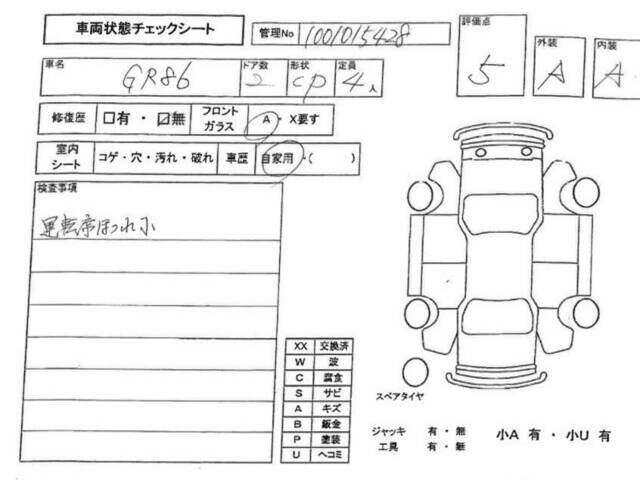 車両状態チェックシート 管理No 1001015428
評価点 外装 内装
5 A A
車名 GR86 ドア数 2 形状 CP 定員 4人
修復歴 □有・☑無 フロントガラス A・X要す
室内シート コゲ・穴・汚れ・破れ 車歴 自家用・( )
検査事項
運転席ほつれ小
XX 交換済
W 波
C 腐食
S サビ
A キズ
B 鈑金
P 塗装
U ヘコミ
スペアタイヤ
ジャッキ 有・無
工具 有・無
小A 有・小U 有